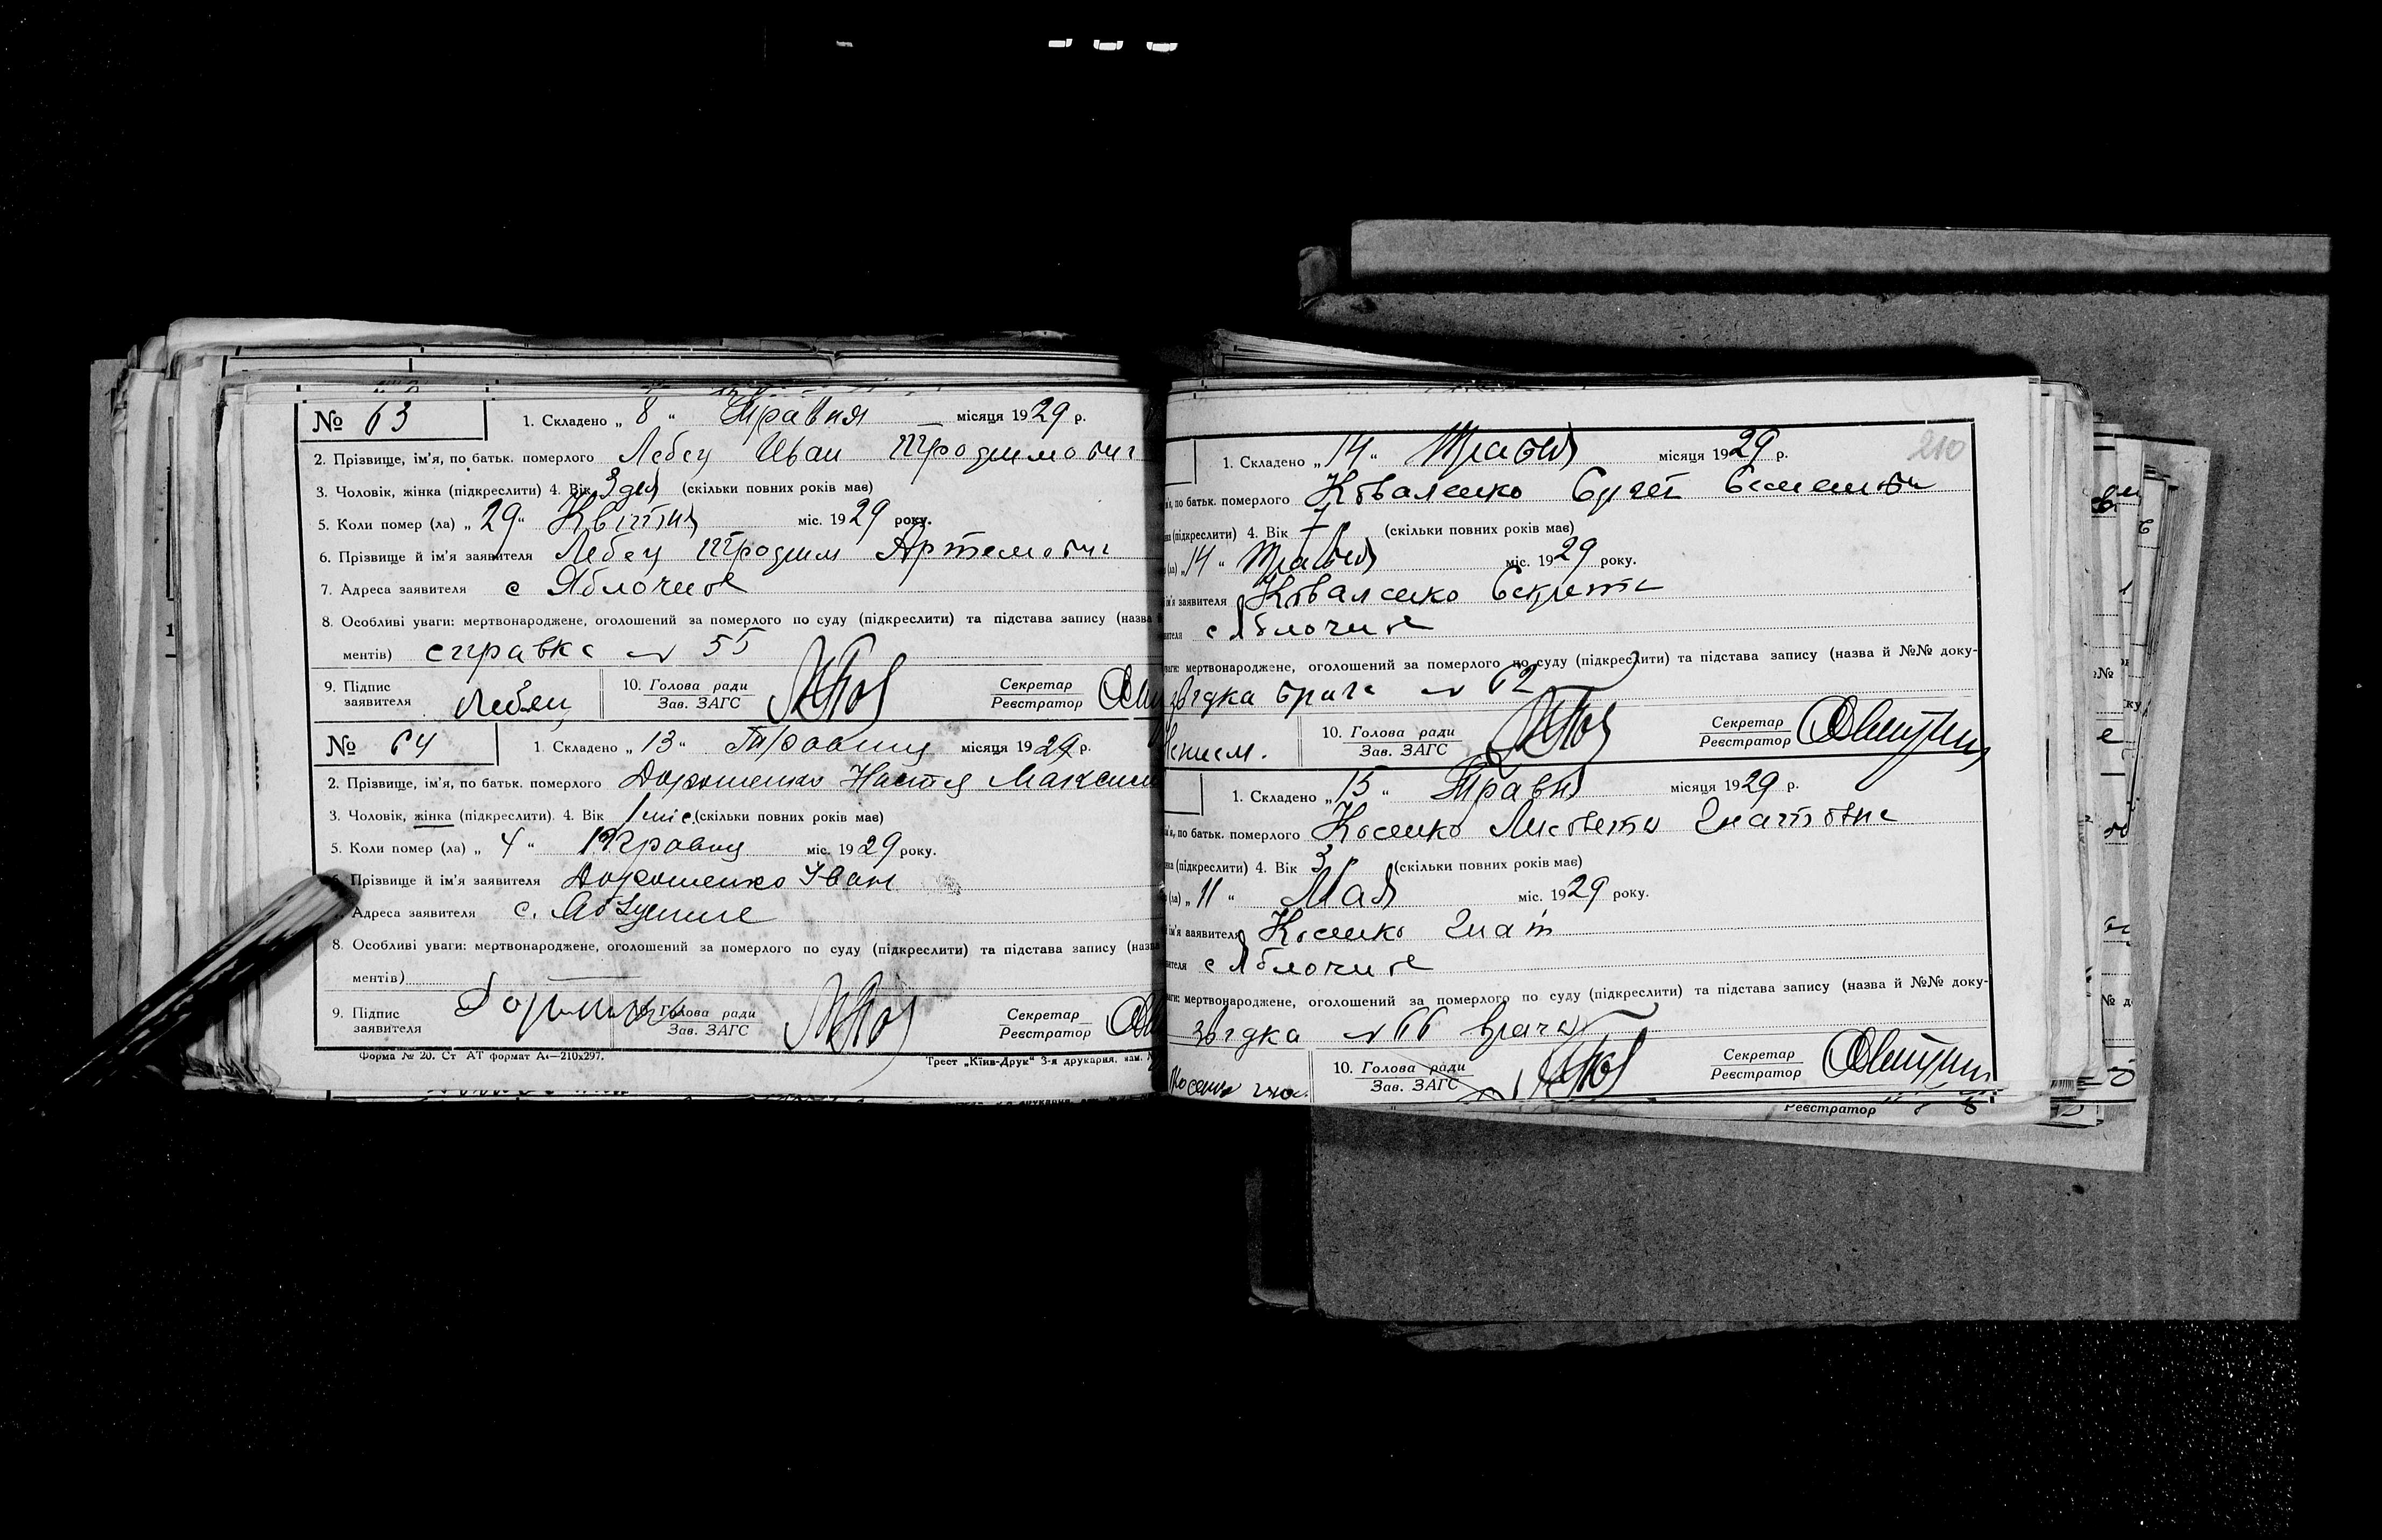 № 63
1. Складено „ 8 “ Травня місяця 1929 р.
2. Прізвище, ім'я, по батьк. померлого Лебец Иван Продимович
3. Чоловік, жінка (підкреслити) 4. Вік 3 дня (скільки повних років має)
5. Коли помер (ла) „ 29 “ Квітня міс. 1929 року.
6. Прізвище й ім'я заявителя Лебец Артемович
7. Адреса заявителя с Яблочное
8. Особливі уваги: мертвонароджене, оголошений за померлого по суду (підкреслити) та підстава запису (назва
ментів) справка № 55
9. Підпис заявителя Лебец 10. Голова ради Секретар
Зав. ЗАГС Реєстратор
№ 64
1. Складено „ 13 “ місяця 1929 р.
2. Прізвище, ім'я, по батьк. померлого Дорошенко Настя Максим
3. Чоловік, жінка (підкреслити). 4. Вік 1 міс. (скільки повних років має)
5. Коли помер (ла) „ 4 “ міс. 1929 року.
6. Прізвище й ім'я заявителя Дорошенко Іван
Адреса заявителя с.
8. Особливі уваги: мертвонароджене, оголошений за померлого по суду (підкреслити) та підстава запису (назва
ментів)
9. Підпис заявителя 10. Голова ради Секретар
Зав. ЗАГС Реєстратор
Форма № 20. Ст АТ формат А4—210х297.
Трест „Київ-Друк“ 3-я друкарня, зам. №
210
1. Складено „ 14 “ Травня місяця 1929 р.
по батьк. померлого Коваленко
(підкреслити) 4. Вік 7 (скільки повних років має)
„ 14 “ Травня міс. 1929 року.
заявителя Коваленко
с Яблочне
мертвонароджене, оголошений за померлого по суду (підкреслити) та підстава запису (назва й №№ доку-
звідка врача № 62
10. Голова ради Секретар
Зав. ЗАГС Реєстратор
1. Складено „ 15 “ Травня місяця 1929 р.
по батьк. померлого Косенко Лисовета Гнатовна
(підкреслити) 4. Вік 3 р (скільки повних років має)
„ 11 “ Мая міс. 1929 року.
ім'я заявителя Косенко Гнат
с Яблочне
мертвонароджене, оголошений за померлого по суду (підкреслити) та підстава запису (назва й №№ доку-
звідка № 66 врача
10. Голова ради Секретар
Зав. ЗАГС Реєстратор
Реєстратор